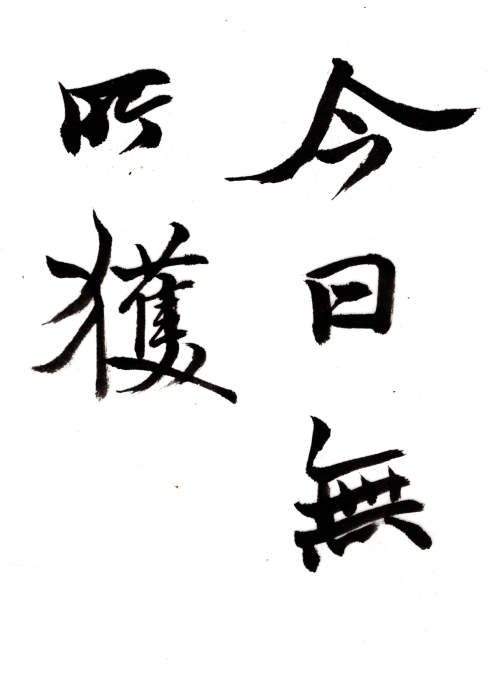 今日無
所獲